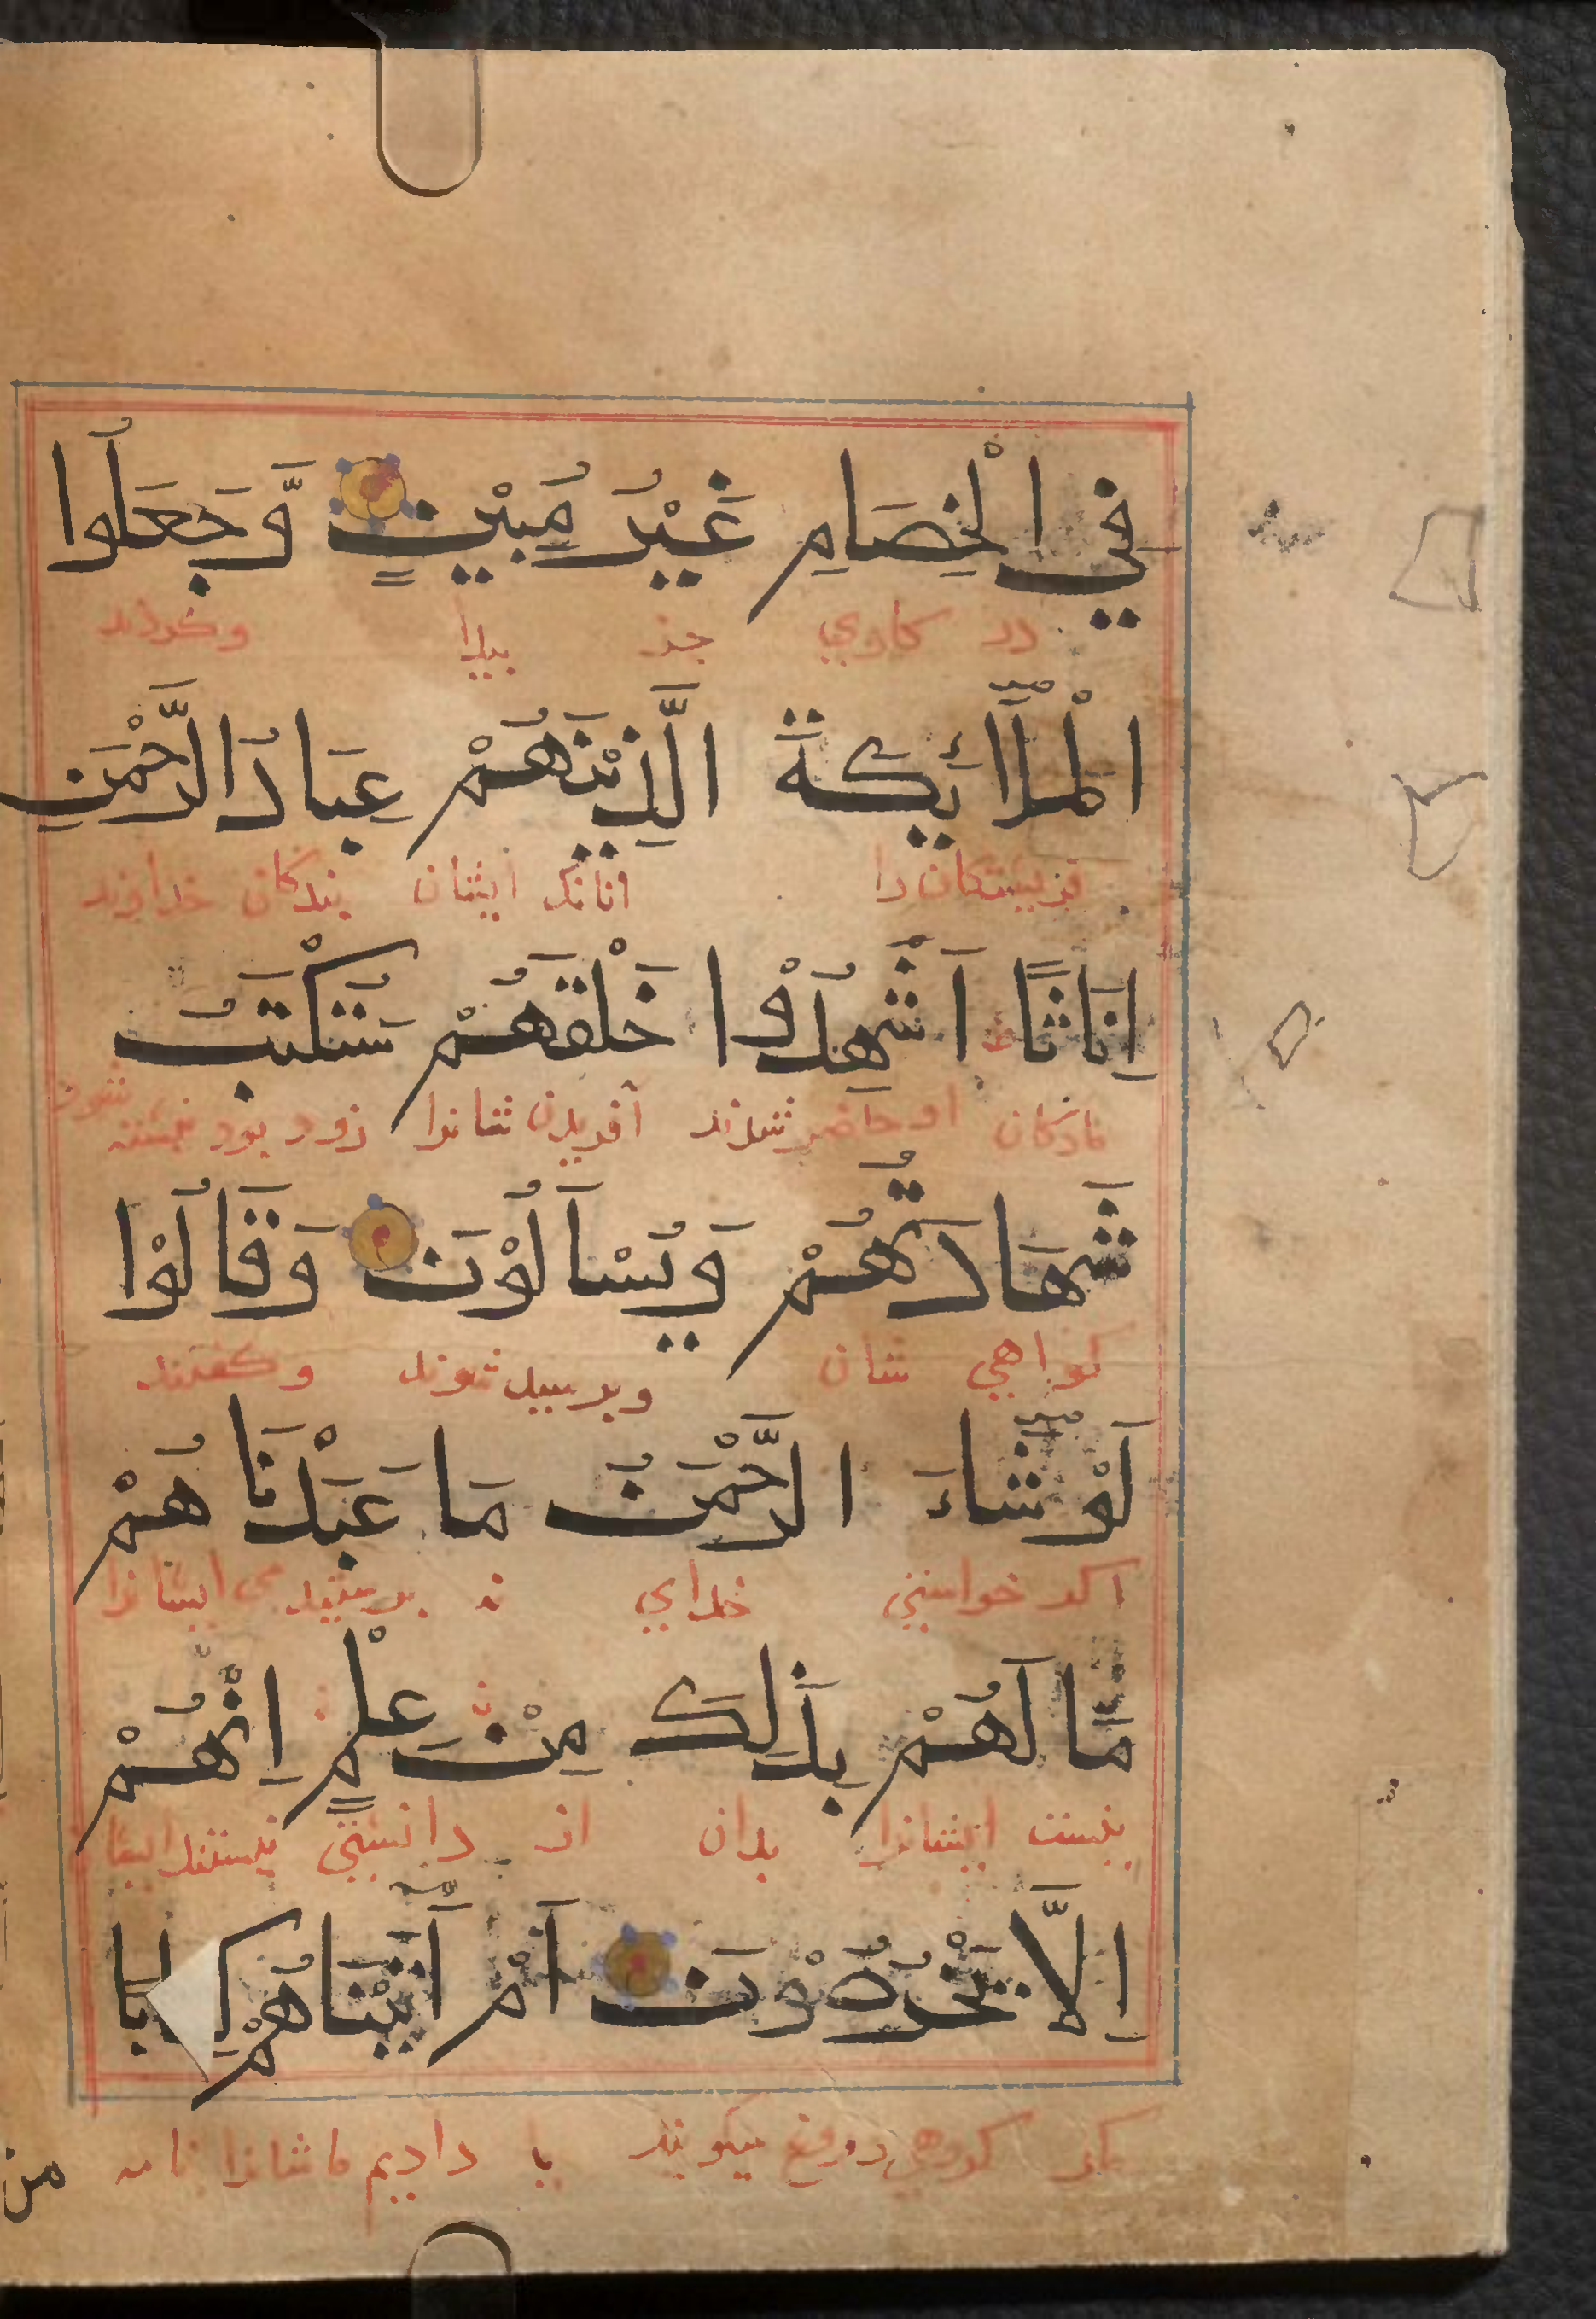 فِي الْخِصَامِ غَيْرُ مُبِيْنٍ وَّجَعَلُوا
در جز پيدا وكردند
الْمَلَآئِكَةَ الَّذِيْنَ هُمْ عِبَادُ الرَّحْمٰنِ
فريشتكان را انانك ايشان بندكان خداوند
اِنَاثًا ط اَشَهِدُوْا خَلْقَهُمْ سَتُكْتَبُ
مادكان حاضر شدند آفريدن شانرا زود بود
شَهَادَتُهُمْ وَيُسْاَلُوْنَ وَقَالُوْا
كواهي شان وپرسيد شوند وكفتند
لَوْ شَآءَ الرَّحْمٰنُ مَا عَبَدْنَاهُمْ
اكر خواستي خداي نه پرستيدمي ايشانرا
مَّا لَهُمْ بِذٰلِكَ مِنْ عِلْمٍ اِنْ هُمْ
نيست ايشانرا بدان از دانشي نيستند ايشا
اِلَّا يَخْرُصُوْنَ اَمْ اٰتَيْنَاهُمْ كِتَابًا
مكر دروغ ميكويند يا داديم ما شانرا نامه
من